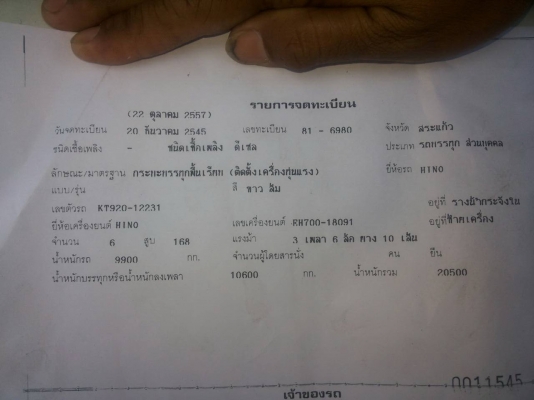 รายการจดทะเบียน
(22 ตุลาคม 2557)
วันจดทะเบียน 20 ธันวาคม 2545 เลขทะเบียน 81 - 6980 จังหวัด สระแก้ว
ชนิดเชื้อเพลิง - ชนิดเชื้อเพลิง ดีเซล ประเภท รถบรรทุก ส่วนบุคคล
ลักษณะ/มาตรฐาน กระบะบรรทุกพื้นเรียบ (ติดตั้งเครื่องทุ่นแรง) ยี่ห้อรถ HINO
แบบ/รุ่น สี ขาว ส้ม
เลขตัวรถ KT920-12231 อยู่ที่
ยี่ห้อเครื่องยนต์ HINO เลขเครื่องยนต์ RH700-18091 อยู่ที่ ซ้ายเครื่อง
จำนวน 6 สูบ 168 แรงม้า 3 เพลา 6 ล้อ ยาง 10 เส้น
น้ำหนักรถ 9900 กก. จำนวนผู้โดยสารนั่ง คน ยืน
น้ำหนักบรรทุกหรือน้ำหนักลงเพลา 10600 กก. น้ำหนักรวม 20500
0011545
เจ้าของรถ